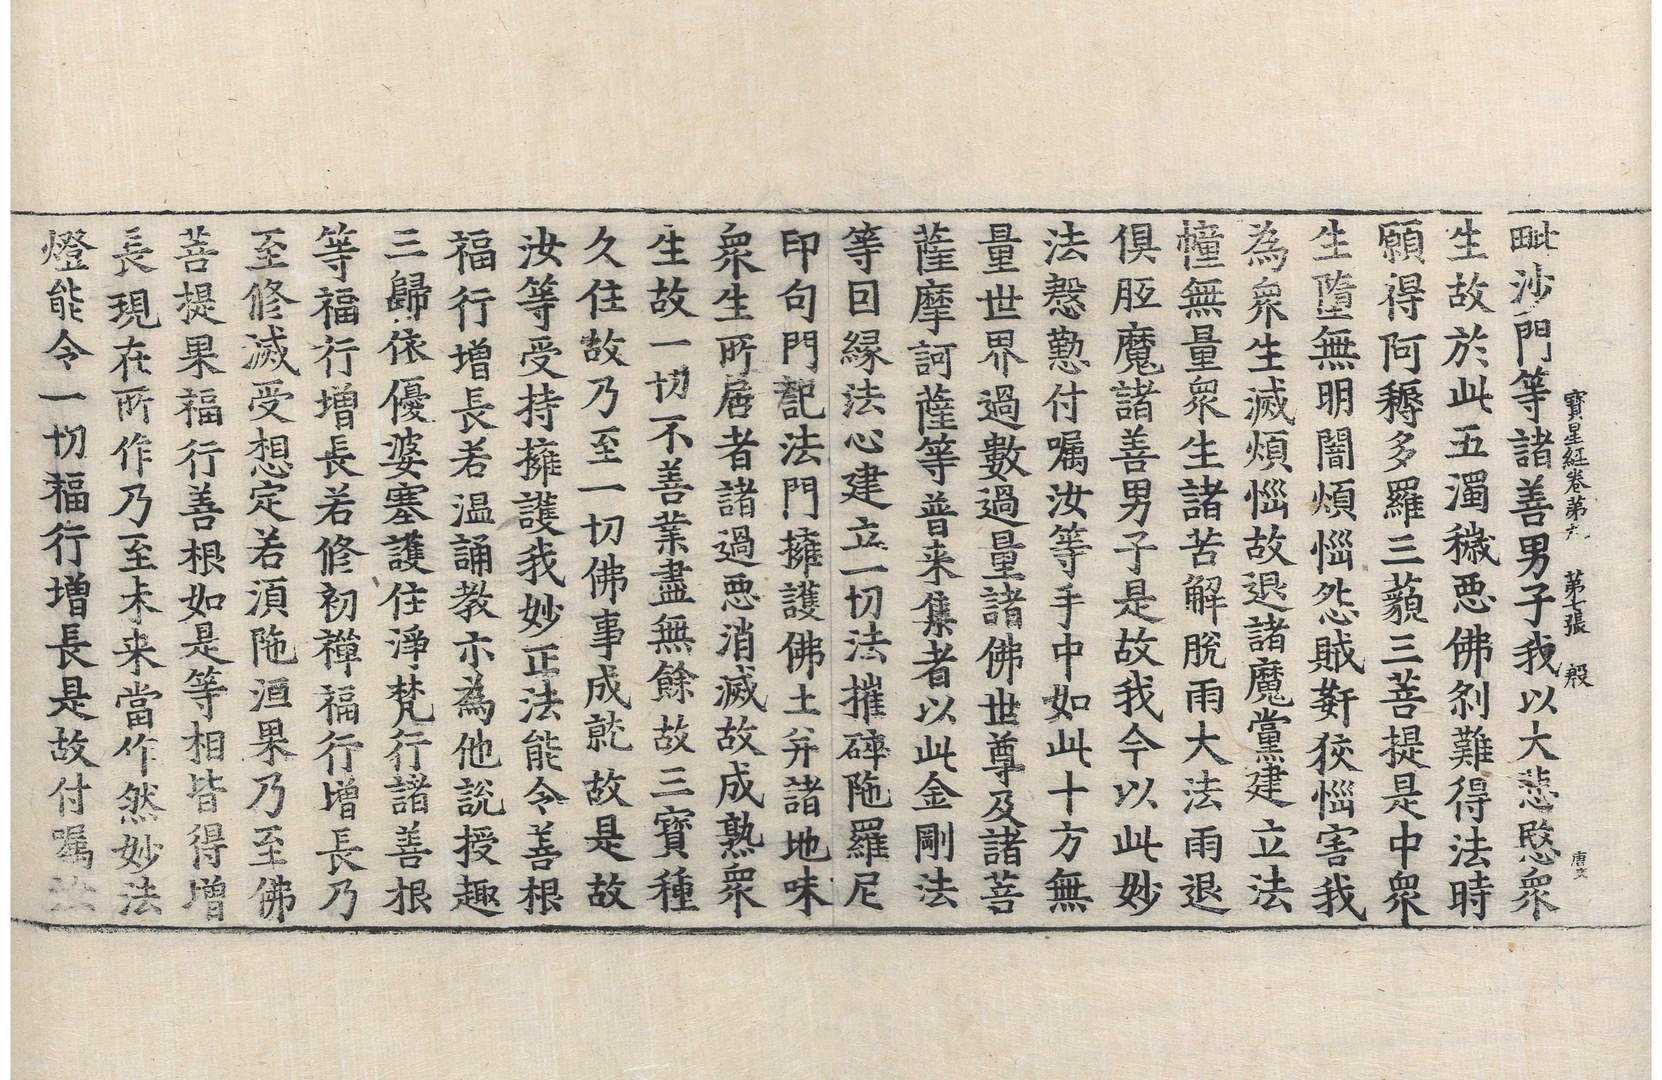 毗沙門等諸善男子我以大悲愍衆
寶星經卷第六 第七張 殷
唐文
生故於此五濁穢惡佛刹難得法時
願得阿耨多羅三藐三菩提是中衆
生墮無明闇煩惱怨賊姧狡惱害我
為衆生滅煩惱故退諸魔黨建立法
幢無量衆生諸苦解脫雨大法雨退
俱胝魔諸善男子是故我今以此妙
法慇懃付囑汝等手中如此十方無
量世界過數過量諸佛世尊及諸菩
薩摩訶薩等普来集者以此金剛法
等因緣法心建立一切法摧碎陁羅尼
印句門記法門擁護佛土并諸地味
衆生所居者諸過惡消滅故成熟衆
生故一切不善業盡無餘故三寶種
久住故乃至一切佛事成就故是故
汝等受持擁護我妙正法能令善根
福行增長若温誦教示為他說授趣
三歸依優婆塞護住淨梵行諸善根
等福行增長若修初禪福行增長乃
至修滅受想定若湏陁洹果乃至佛
菩提果福行善根如是等相皆得增
長現在所作乃至未来當作然妙法
燈能令一切福行增長是故付囑汝